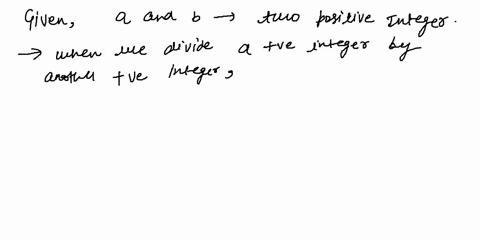 Given, a and b → two positive Integer.
→ when we divide a +ve integer by
another +ve Integer,